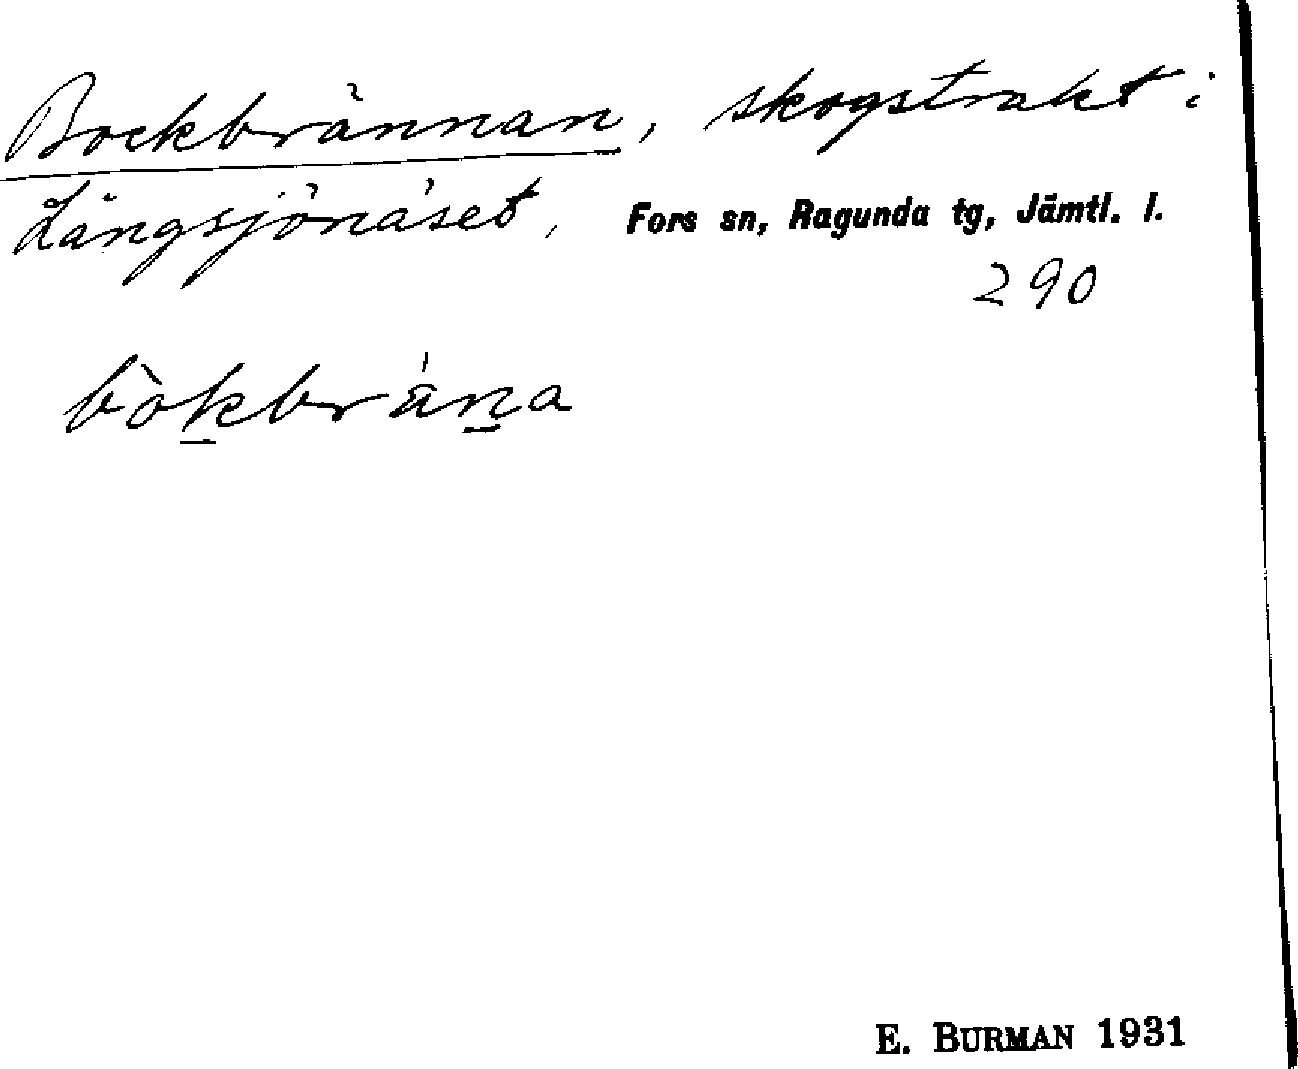 Bockbrännan, skogstrakt i
Långsjönäset, Fors sn, Ragunda tg, Jämtl. l.
290
bòk̲brä́n̲a
E. BURMAN 1931